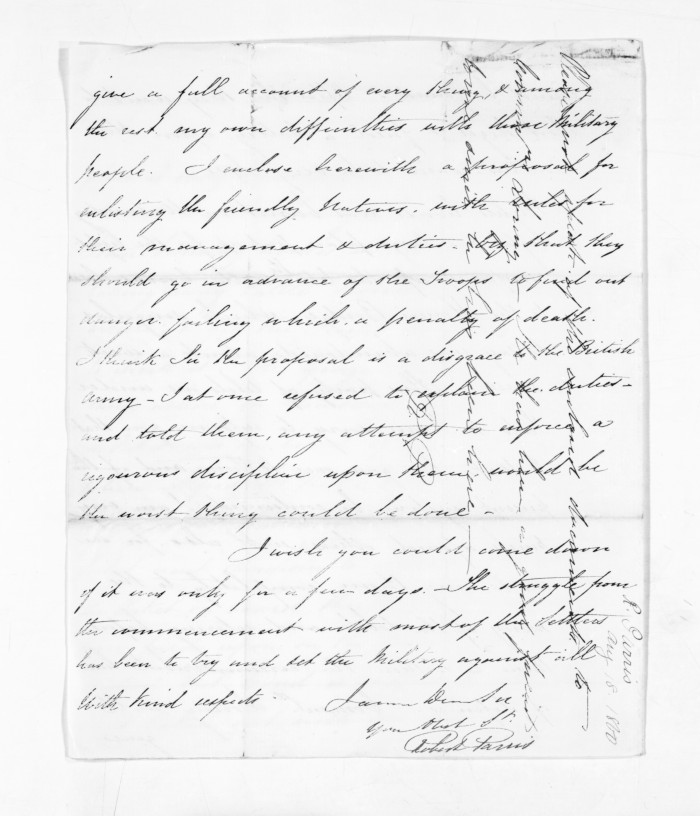 give a full account of every thing, & among
the rest my own difficulties with these Military
people. I enclose herewith a proposal for
enlisting the friendly Natives. with rules for
their management & duties. viz that they
should go in advance of the Troops to find out
danger. failing which. a penalty of death.
I think Sir the proposal is a disgrace to the British
Army - I at once refused to explain the duties -
and told them, any attempt to enforce a
rigourous discipline upon them would be
the worst thing could be done -
I wish you could come down
if it was only for a few days. - The struggle from
the commencement with most of the Settlers
has been to try and set the Military against all
With kind respects.
I am Dear Sir
Your Obdt St.
Robert Parris
Please not speak of the enclosed document to
R Parris
Aug 8 1860